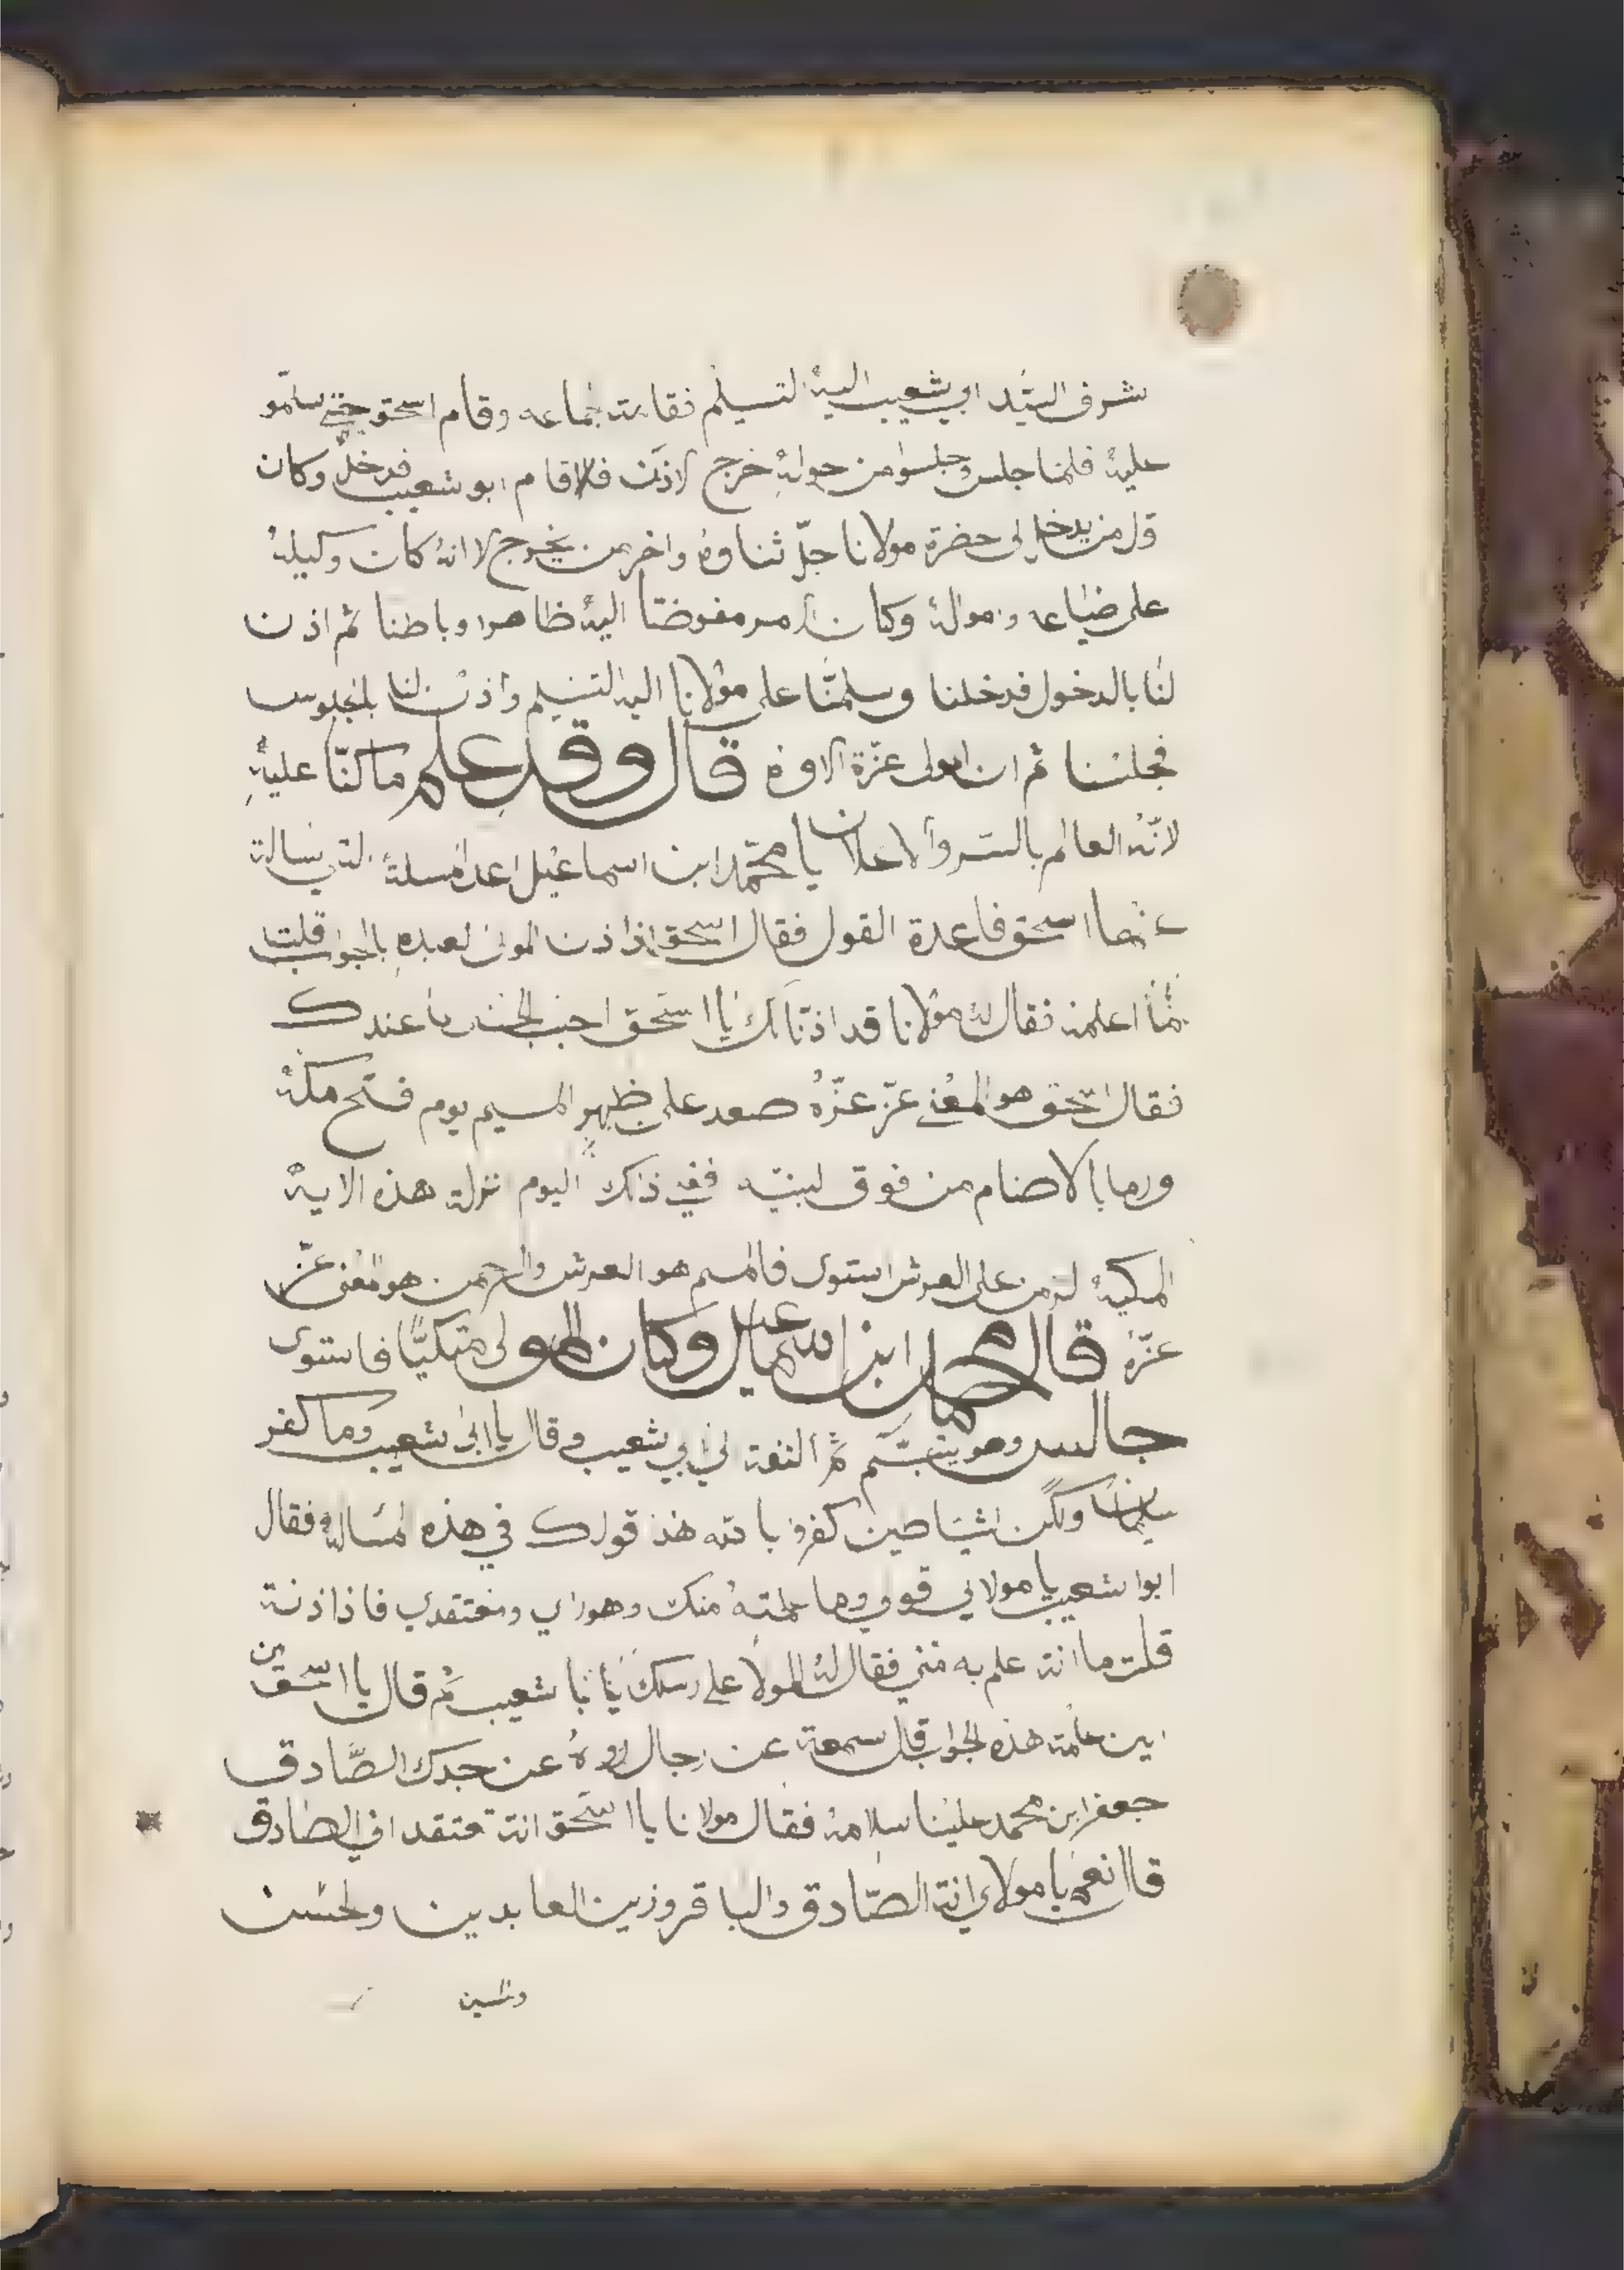 شرف السيد ابي شعيب اليه التسليم فقامت جماعه وقام اسحق حتي سلمو
عليه فلما جلس وجلسوا من حوله خرج الاذن فلا قام ابو شعيب فدخل وكان
ول من يدخل الى حضرة مولانا جلّ ثناوه واخر من يخرج لاانه كان وكيله
على ضياعه وموله وكان الامر مفوضتا اليه ظاهرا وباطنا ثم اذن
لنا بالدخول فدخلنا وسلمنا على مولانا اليه التسليم واذن لنا بلجلوس
فجلسنا ثم ان المولى عزّة الاوه قال وقد علم ما كنّا عليه
لانّه العالم بالسر والاعلان يا محمّد ابن اسماعيل اعد المسلة التي سالت
عنها اسحق فاعدة القول فقال اسحق اذا ذن المولى لعبده بالجواب قلت
بما اعلمه فقال له مولانا قد اذنّا لك يا اسحق اجب بحسب ما عندك
فقال اسحق هو المعنى عزّ عزّه صعد على ظهر الميم يوم فتح مكة
ورما بالاصنام من فوق لبيته ففي ذلك اليوم نزلت هذه الايه
المكية لرحمن على العرش استوى فالميم هو العرش والرحمن هو المعنى عزّ
عزّه قال محمد ابن اسماعيل وكان المولى متكيًّا فاستوى
جالس وهو يتبسّم ثم التفت لي ابي شعيب وقال يا ابى شعيب وما كفر
سليمان ولكن الشياطين كفرو بالله هذ قولك في هذه المساله فقال
ابوا شعيب يا مولاي قولي وما علمته منك وهوراي ومعتقدي فاذا ذنة
قلت ما انت علم به مني فقال له المولا على رسلك يا با شعيب ثم قال يا اسحق من
اين علمت هذه الجواب قال سمعت عن رجال روه عن جدك الصّادق
جعفر ابن محمد علينا سلامه فقال مولانا يا اسحق انت تعتقد افي الصادق
قاا نعم يا مولاي انت الصّادق والباقر وزين العابدين ولحسن
والحسين